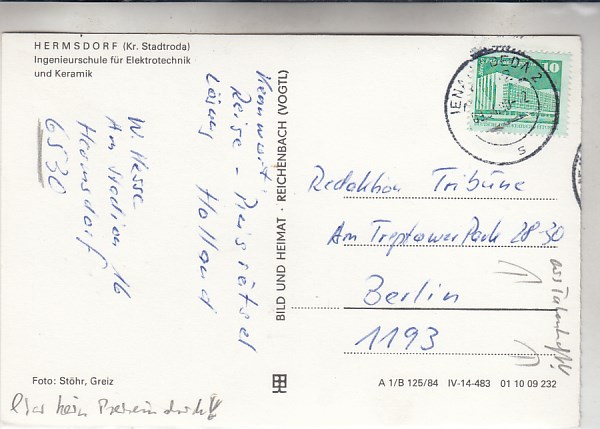 HERMSDORF (Kr. Stadtroda)
Ingenieurschule für Elektrotechnik
und Keramik
Kennwort:
Reise - Preisrätsel
Lösung Holland
W. Hesse
Am Stadion 16
Hermsdorf
6530
BILD UND HEIMAT · REICHENBACH (VOGTL)
JENA
2
10
S
Redaktion Tribüne
Am Treptower Park 28-30
Berlin
1193
Foto: Stöhr, Greiz
A 1/B 125/84 IV-14-483 01 10 09 232